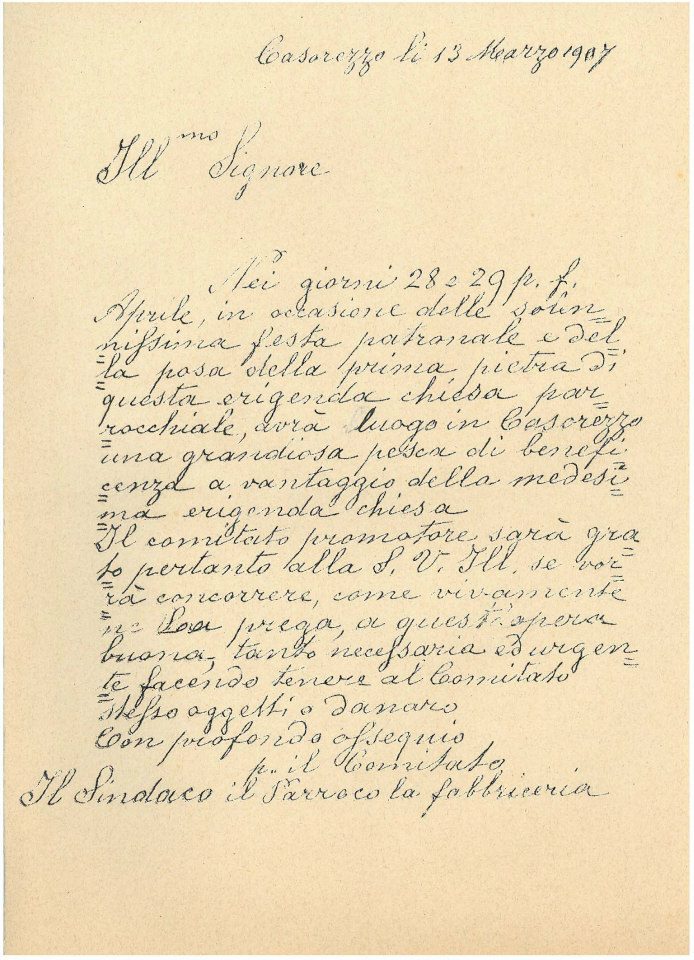 Casorezzo li 13 Marzo 1907
Ill.mo Signore
Nei giorni 28 e 29 p. f.
Aprile, in occasione delle solin=
=nissima festa patronale e del
=la posa della prima pietra di
questa erigenda chiesa par=
=rocchiale, avrà luogo in Casorezzo
una grandiosa pesca di benefi
=cenza a vantaggio della medesi=
=ma erigenda chiesa
Il comitato promotore sarà gra=
=to pertanto alla S. V. Ill. se vor=
=rà concorrere, come vivamente
ne La prega, a quest'opera
buona, tanto necessaria ed urgen=
=te facendo tenere al Comitato
stesso oggetti o danaro
Con profondo ossequio
p. il Comitato
Il Sindaco il Parroco la fabbriceria